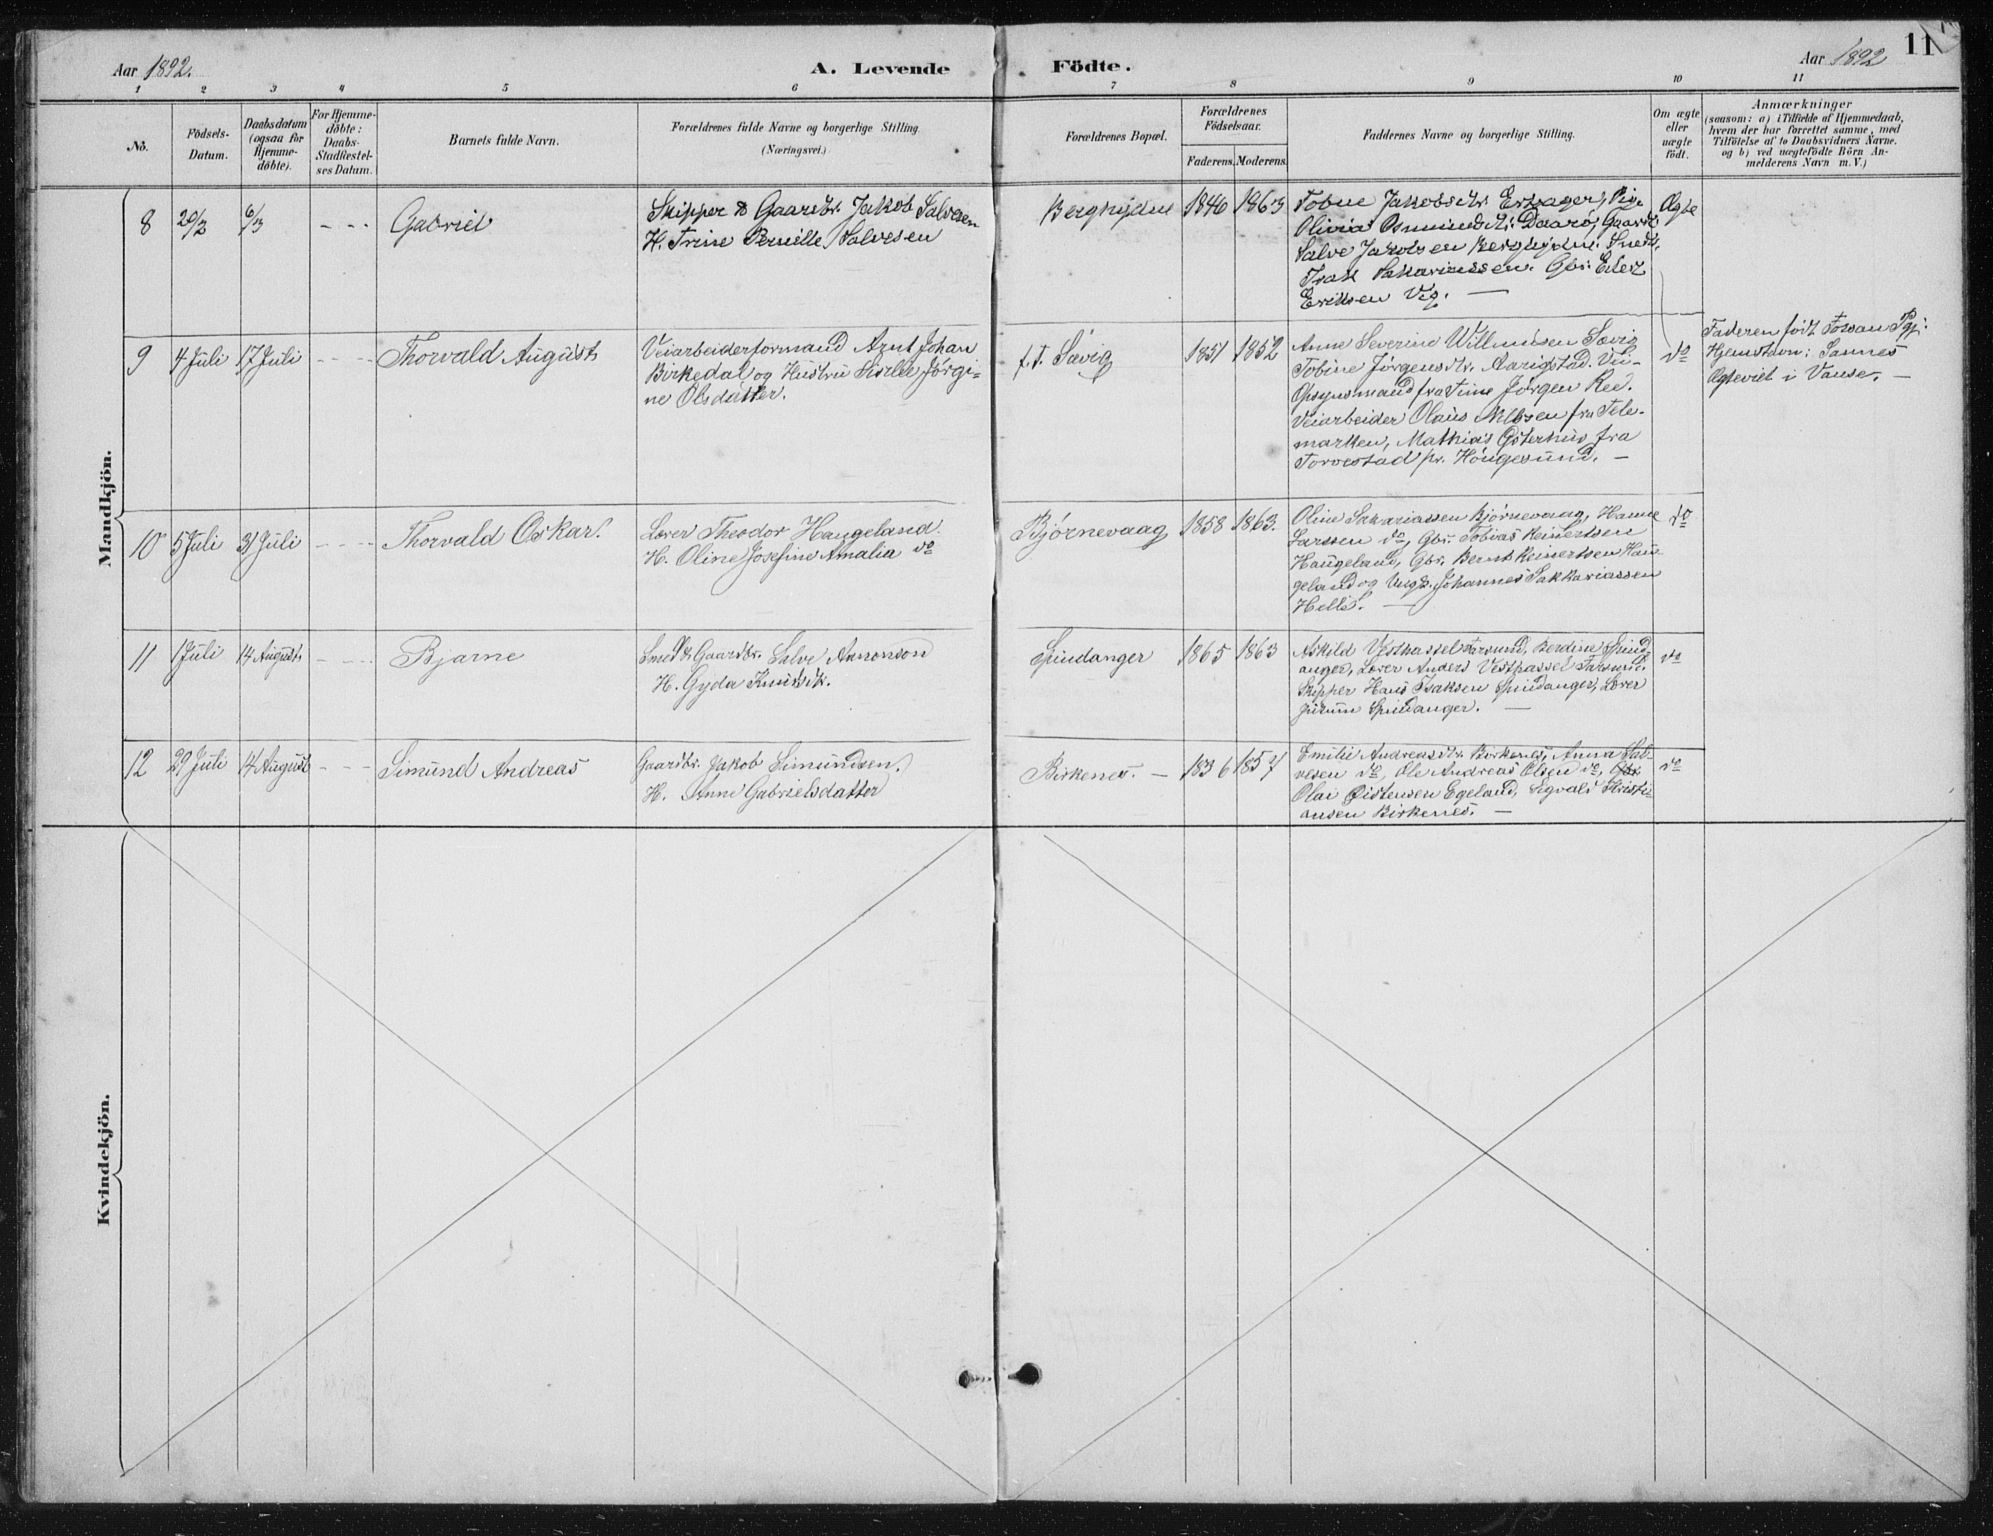 Aar 1892.
A. Levende
Födte.
Aar 1892
11
1 2 3 4 5 6 7 8 9 10 11
No.
Födsels-
Datum.
Daabsdatum
(ogsaa for
Hjemme-
döbte).
For Hjemme-
döbte:
Daabs-
Stadfæstel-
ses Datum.
Barnets fulde Navn.
Forældrenes fulde Navne og borgerlige Stilling.
(Næringsvei.)
Forældrenes Bopæl.
Forældrenes
Födselsaar.
Faderens. Moderens.
Faddernes Navne og borgerlige Stilling.
Om ægte
eller
uægte
födt.
Anmærkninger
(saasom: a) i Tilfælde af Hjemmedaab,
hvem der har forrettet samme, med
Tilföielse af to Daabsvidners Navne.
og b) ved uægtefödte Börn An-
melderens Navn m. V.)
Mandkjön.
8
20/2
6/3
- - -
Gabriel
Skipper & Gaardbr. Jakob Salvesen
H. Trine Pernille Salvesen
1846 1863
Tobine Jakobsdtr.
Olivia Osmundsdtr. Gaardb.
Salve Jakobsen
Isak Sakariassen. Gbr.
Eriksen Vig. —
Ægte
9
4 Juli
17 Juli
- - - -
Thorvald August
Veiarbeiderformand Arnt Johan
Birkedal og Hustru Jørgi-
ne Olsdatter.
f. T. Sævig
1851 1852
Anne Severine Willumsen Sævig
Tobine Jørgensdtr. Aarigstad. Vei-
Opsynsmand fra Jørgen Ree.
Veiarbeider Olaus Nilsen fra Tele-
marken, Mathias Østerhus fra
Torvestad pr. Høugesund. —
do
Faderen født Fossan Pgj:
Hjemstavn: Sannes
Ægteviet i Vanse. —
10
5 Juli
31 Juli
- - - -
Thorvald Oskar.
Lover Theodor Haugeland
H. Oline Josefine Amalia do
Bjørnevaag
1858 1863.
Oline Sakariassen Bjørnevaag, Hanne
Larssen do, Gbr. Tobias Reinertsen
Haugeland, Gbr. Bernt Reinertsen Hau-
geland og Ungk. Johannes Sakkariassen
Helle. —
do
11
1 Juli
14 August
- - - -
Bjarne
Smed & Gaardbr. Salve Aanonson
H. Gyda
Spindanger
1865 1863
Askild Vesthassel Farsund, Berdine Spind-
anger, Lover Anders Vesthassel Farsund.
Skipper Hans Isaksen Spindanger, Lover
Spindanger. —
do
12
29 Juli
14 August
- - - -
Simund Andreas
Gaardbr. Jakob Simundsen.
H. Anne Gabrielsdatter
Birkenes. —
1836 1857
Emilie Andreasdtr. Birkenes, Anna Sal-
vesen do, Ole Andreas Olsen do, Gbr.
Olai Øistensen Egeland, Sigvald Kristi-
ansen Birkenes. —
do
Kvindekjön.